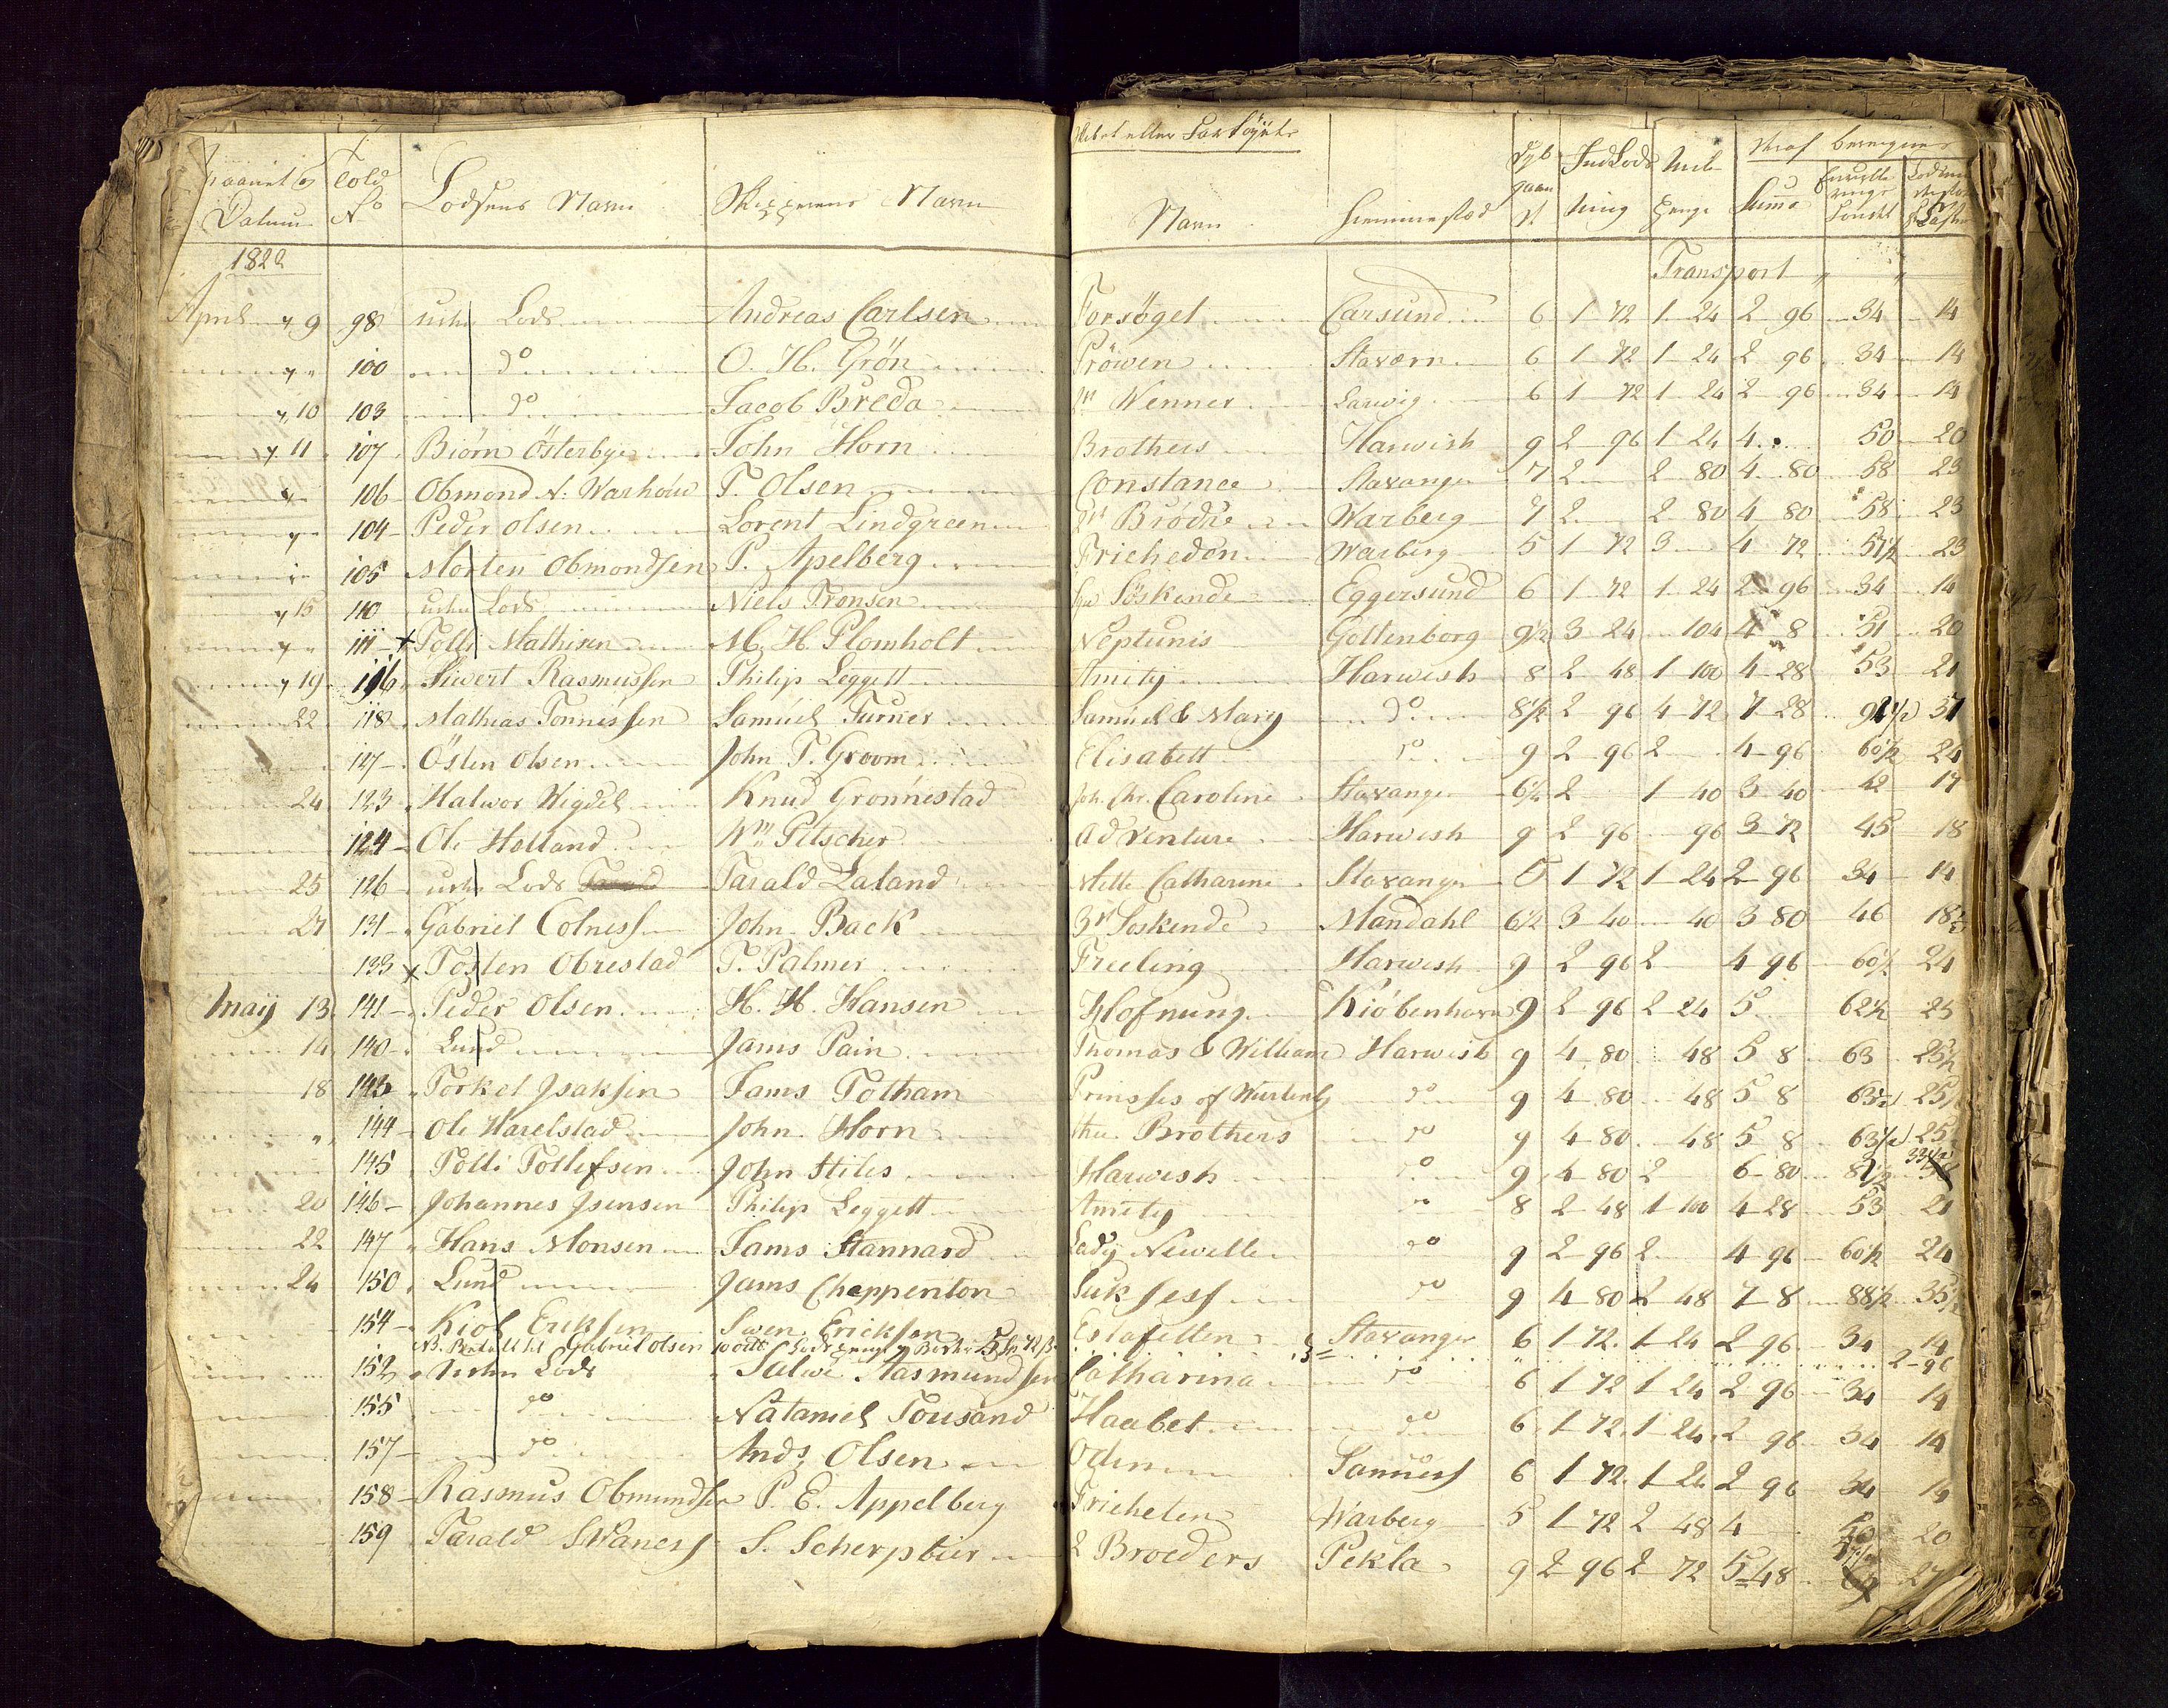 Maanet & Datum Told No Lodsens Navn Skipperens Navn Skibet eller Fartöyets Navn Hiemmestæd Dyb gaaen Indlods ning Penge Suma
1822 Transport " "
April " 9 98 Lods Andreas Carlsen Forsöget Carsund 6 1 72 1 24 2 96 34 14
" " 100 do O. H. Grön Pröwen Staværn 6 1 72 1 24 2 96 34 14
" 10 103 do Jacob Breda Wenner Larwig 6 1 72 1 24 2 96 34 14
" 11 107 Biørn Österbye John Horn Brothers Harwich 9 2 96 1 24 4 50 20
" " 106 Obmond N. Warhoue T. Olsen Constance Stavanger 7 2 2 80 4 80 58 23
" " 104 Peder olsen Lorent Lindgreen Brødre Warberg 7 2 2 80 4 80 58 23
" " 105 Morten Obmondsen P. Apelberg Friheden Warberg 5 1 72 3 4 72 57½ 23
" 15 110 Lods Niels Tronsen Söskende Eggersund 6 1 72 1 24 2 96 34 14
" " 111 x Tolli Mathisen M. H. Plomholt Neptunis Gottenborg 9½ 3 24 104 4 8 51 20
" 19 116 Siwert Rasmussen Philip Leggett Amity Harwish 8 2 48 1 100 4 28 53 21
22 118 Mathias Tonnessen Samuel Turner Samuel & Mary do 8½ 2 96 4 72 7 28 37
117 Østen olsen John T. Groom Elisabett do 9 2 96 2 4 96 60½ 24
24 123 Halwor Wigdel Knud Gronnestad Joh. Chr. Caroline Stavanger 6½ 2 1 40 3 40 42 17
124 Ole Holland Wm Pitscher Adventure Harwish 9 2 96 96 3 72 45 18
25 126 Lods Tarald Laland Mette Catharine Stavanger 5 1 72 1 24 2 96 34 14
27 131 Gabriel Colness John Back 3de Soskende Mandahl 6½ 3 40 40 3 80 46 18½
133 x Tosten Obrestad T. Palmer Freeling Harwish 9 2 96 2 4 96 60½ 24
May 13 141 Peder Olsen H. H. Hansen Hofnung Kiöbenhavn 9 2 96 2 24 5 62½ 25
14 140 Lund Jams Pain Thomas & William Harwish 9 4 80 48 5 8 63 25½
18 143 Torkel Isaksen Jams Totham Prinsses of Wurtenb do 9 4 80 48 5 8 63½ 25½
" " 144 Ole Harelstad John Horn Brothers do 9 4 80 48 5 8 63½ 25
145 Tolli Tollefsen John Stiles Harwish do 9 4 80 2 6 80 8½ 33½
20 146 Johannes Jsensen Philip Leggett Amity do 8 2 48 1 100 4 28 53 21
22 147 Hans Monsen Jams Stannard Lady Newille do 9 2 96 2 4 96 60½ 24
24 150 Lund Jams Cheppenton Suksess do 9 4 80 2 48 7 8 88½ 35½
154 Kiol Eriksen Swen Ericksen Estafetten Stavanger 6 1 72 1 24 2 96 34 14
NB. Betalt til Gabriel olsen 2-96
152 Lods Salwe Aasmundsen Catharina do 6 1 72 1 24 2 96 34 14
155 do Nataniel Tousand Haabet do 6 1 72 1 24 2 96 34 14
157 do Ands Olsen Odin Sanness 6 1 72 1 24 2 96 34 14
158 Rasmus Obmundsen P. E. Appelberg Friheten Warberg 5 1 72 2 48 4 50 20
159 Tarald Swaness S. Scherpbier 2 Broeders Pekla 9 2 96 2 72 5 48 27